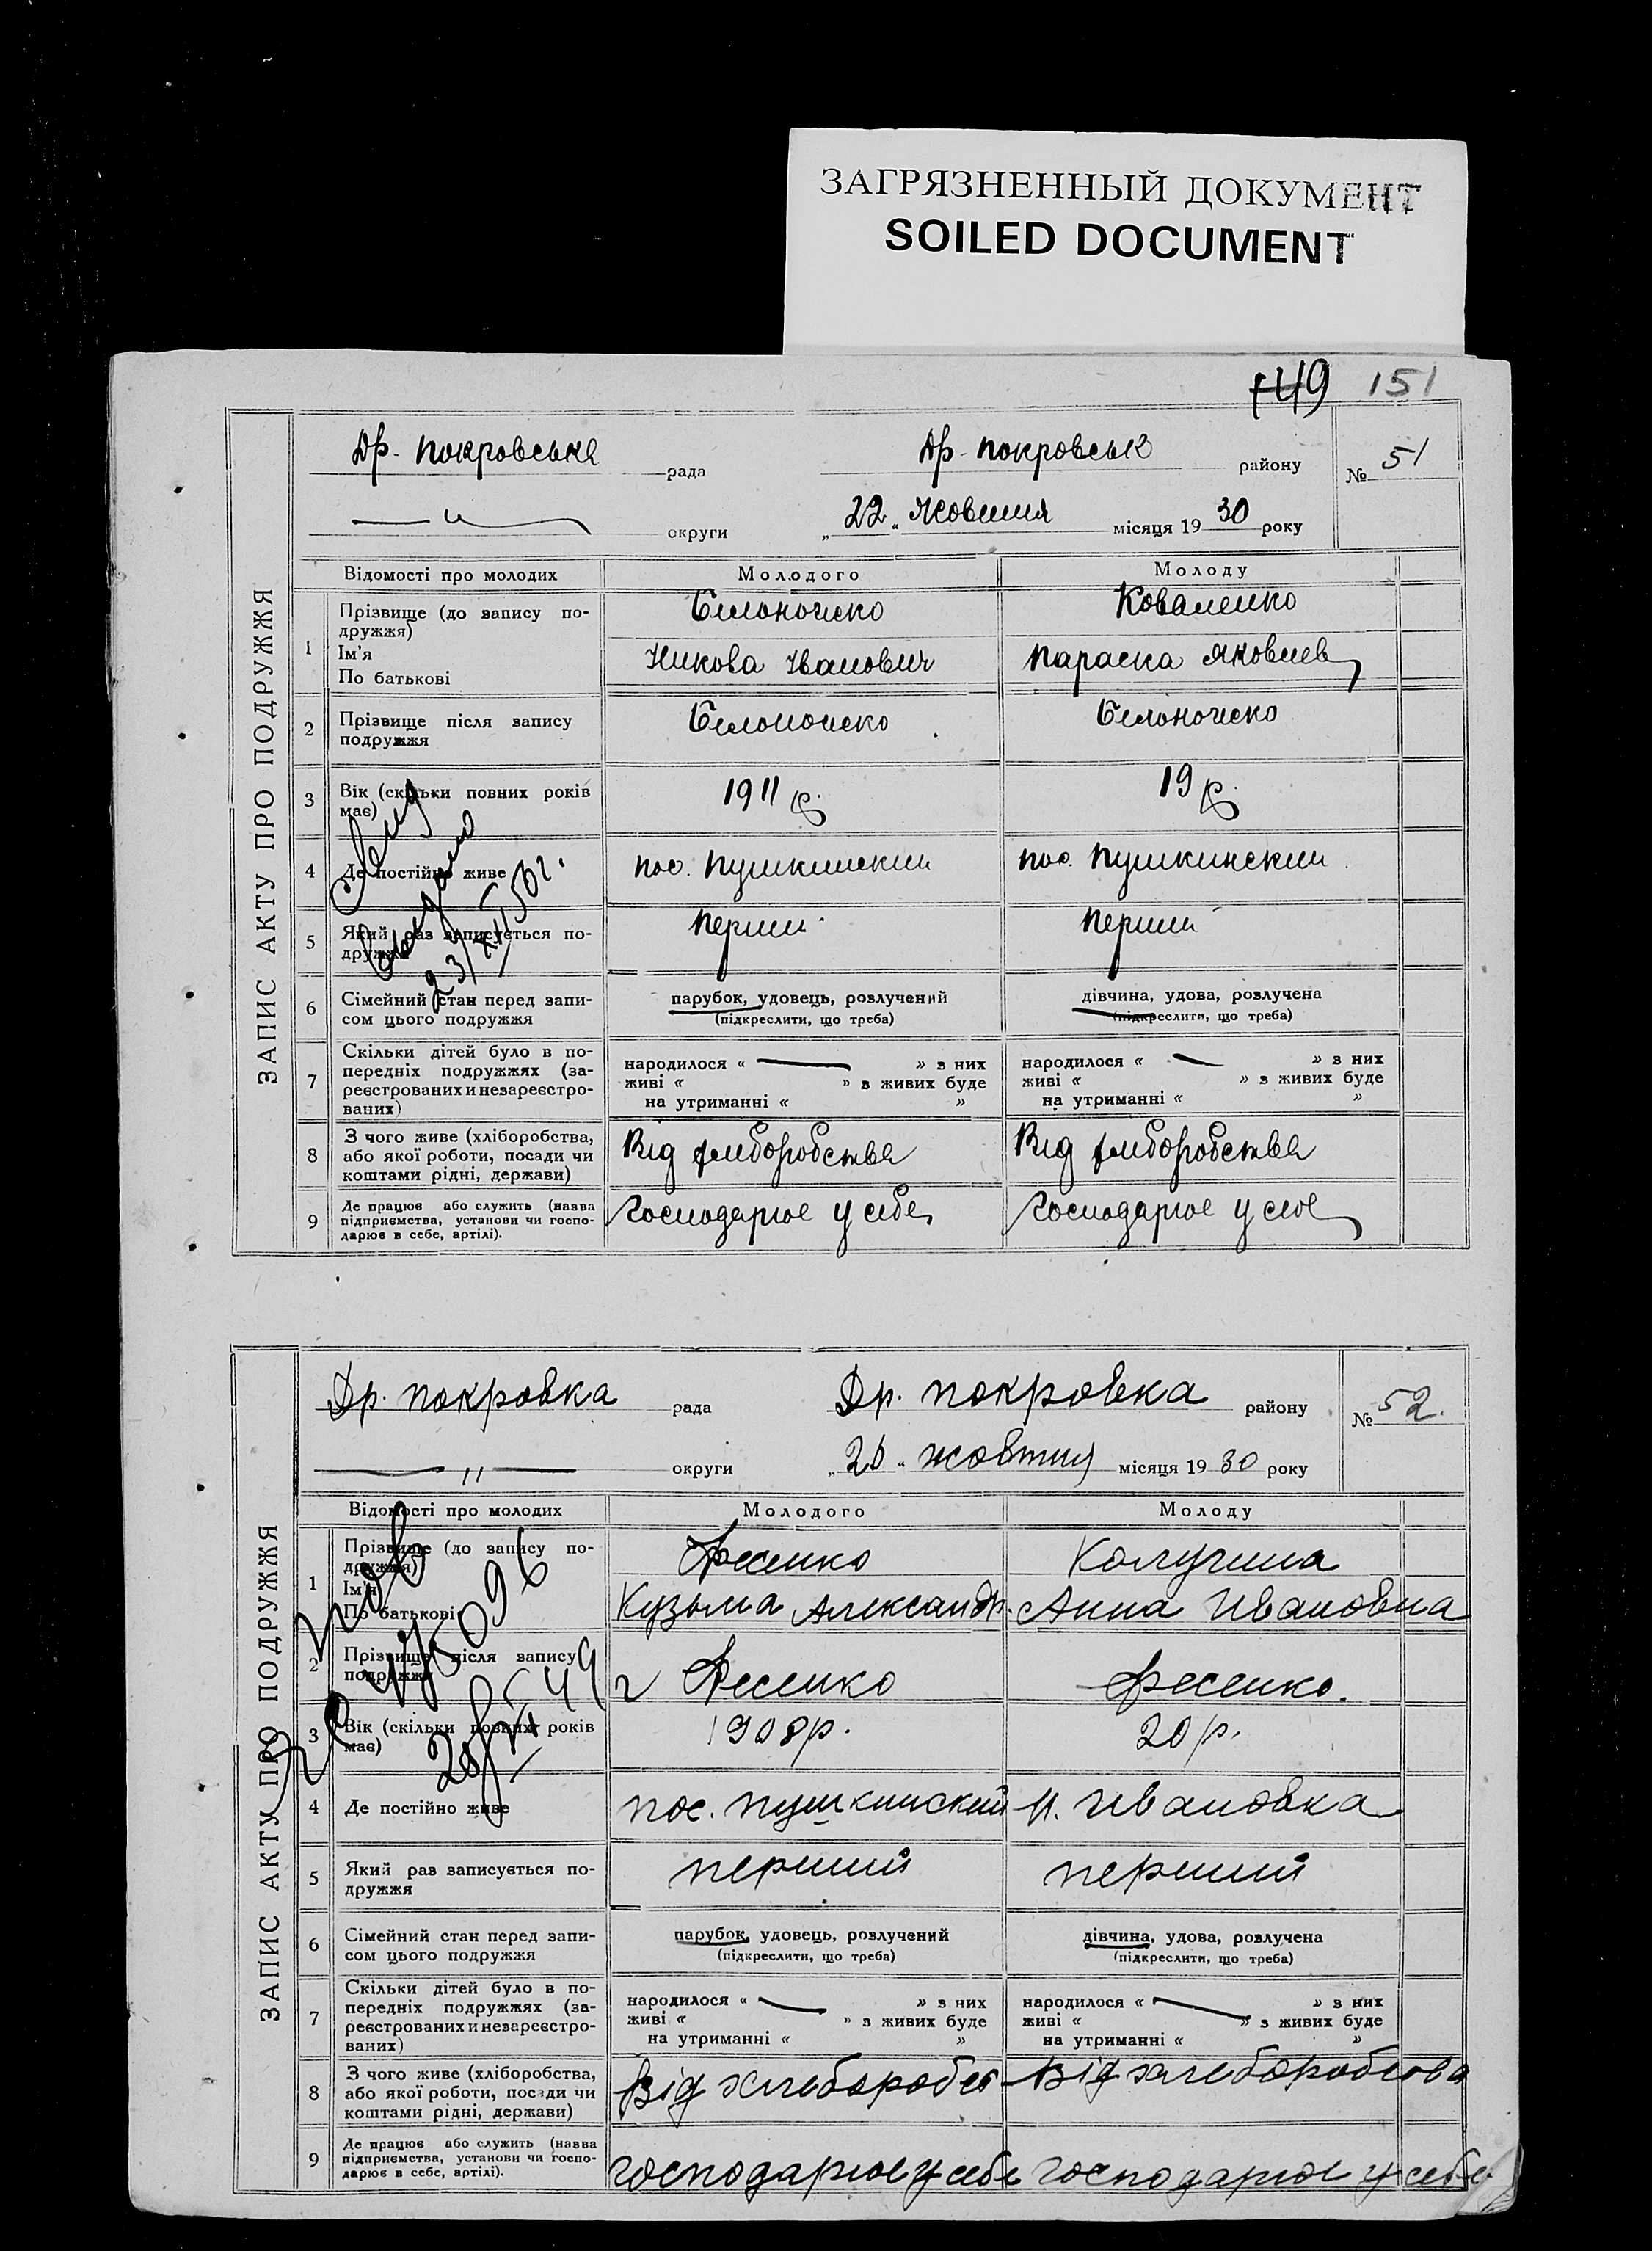 ЗАГРЯЗНЕННЫЙ ДОКУМЕНТ
SOILED DOCUMENT
149 151
ЗАПИС АКТУ ПРО ПОДРУЖЖЯ
Др-покровська рада Др-покровськ району № 51
—"— округи „22“ Жовтня місяця 1930 року
Відомості про молодих Молодого Молоду
1 Прізвище (до запису по-
дружжя)
Ім'я
По батькові
Коваленко
Иванович Параска Яковлев
2 Прізвище після запису
подружжя
3 Вік (скільки повних років
має)
1911 р. 19 р.
4 Де постійно живе
пос. Пушкинский пос. Пушкинский
5 Який раз записується по-
дружжя
перший перший
6 Сімейний стан перед запи-
сом цього подружжя
парубок, удовець, розлучений
(підкреслити, що треба)
дівчина, удова, розлучена
(підкреслити, що треба)
7 Скільки дітей було в по-
передніх подружжях (за-
реєстрованих и незареєстро-
ваних)
народилося « — » з них
живі « » з живих буде
на утриманні « »
народилося « — » з них
живі « » з живих буде
на утриманні « »
8 З чого живе (хліборобства,
або якої роботи, посади чи
коштами рідні, держави)
Від хлиборобства Від хлиборобства
9 Де працює або служить (назва
підприємства, установи чи госпо-
дарює в себе, артілі).
Господарює у себе Господарює у себе
23/XII 50 г.
ЗАПИС АКТУ ПРО ПОДРУЖЖЯ
Др. покровка рада Др. покровка району № 52.
—"— округи „26“ жовтня місяця 1930 року
Відомості про молодих Молодого Молоду
1 Прізвище (до запису по-
дружжя)
Ім'я
По батькові
Фесенко
Кузьма Александр. Анна Ивановна
2 Прізвище після запису
подружжя
Фесенко Фесенко.
3 Вік (скільки повних років
має)
1908 р. 20 р.
4 Де постійно живе
пос. пушкинский н. Ивановка
5 Який раз записується по-
дружжя
перший перший
6 Сімейний стан перед запи-
сом цього подружжя
парубок, удовець, розлучений
(підкреслити, що треба)
дівчина, удова, розлучена
(підкреслити, що треба)
7 Скільки дітей було в по-
передніх подружжях (за-
реєстрованих и незареєстро-
ваних)
народилося « — » з них
живі « » з живих буде
на утриманні « »
народилося « — » з них
живі « » з живих буде
на утриманні « »
8 З чого живе (хліборобства,
або якої роботи, посади чи
коштами рідні, держави)
Від хлеборобст Від хлеборобства
9 Де працює або служить (назва
підприємства, установи чи госпо-
дарює в себе, артілі).
господарює у себе господарює у себе